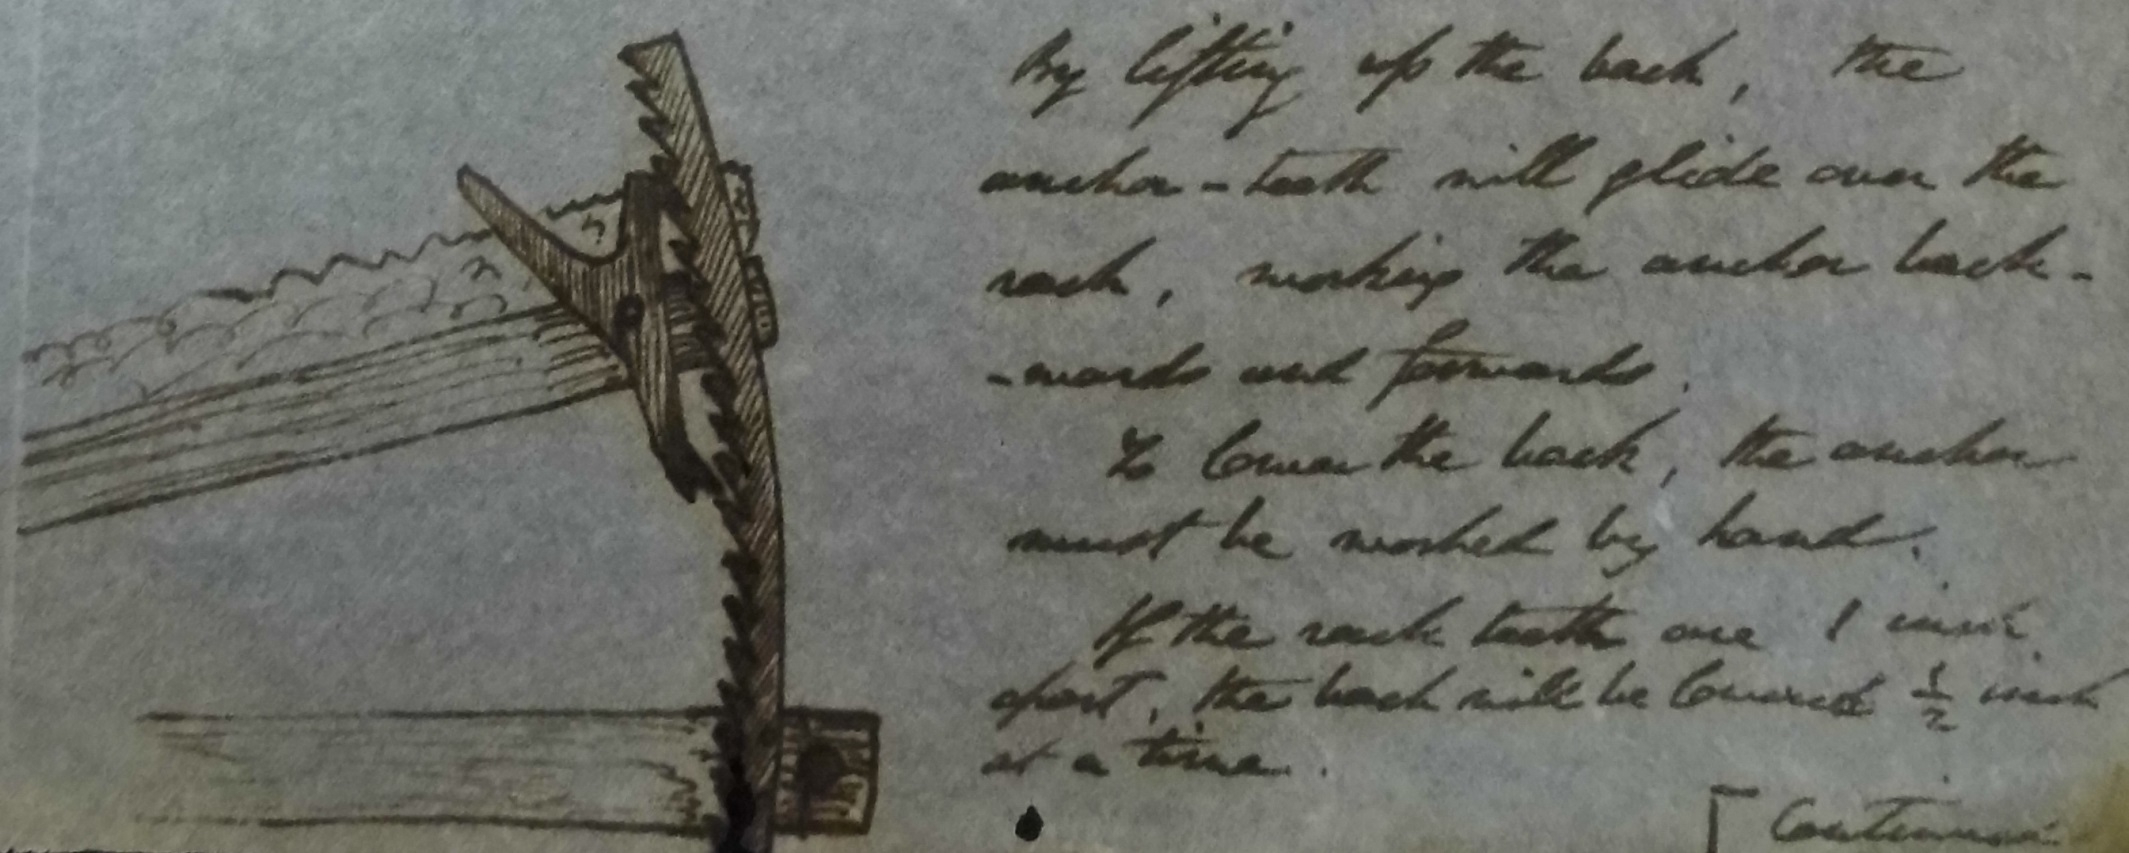 By lifting up the back, the
anchor-teeth will glide over the
rack, working the anchor back-
-wards and forwards.
To lower the back, the anchor
must be worked by hand.
If the rack teeth are 1 inch
apart, the back will be lowered ½ inch
at a time.
[Continued